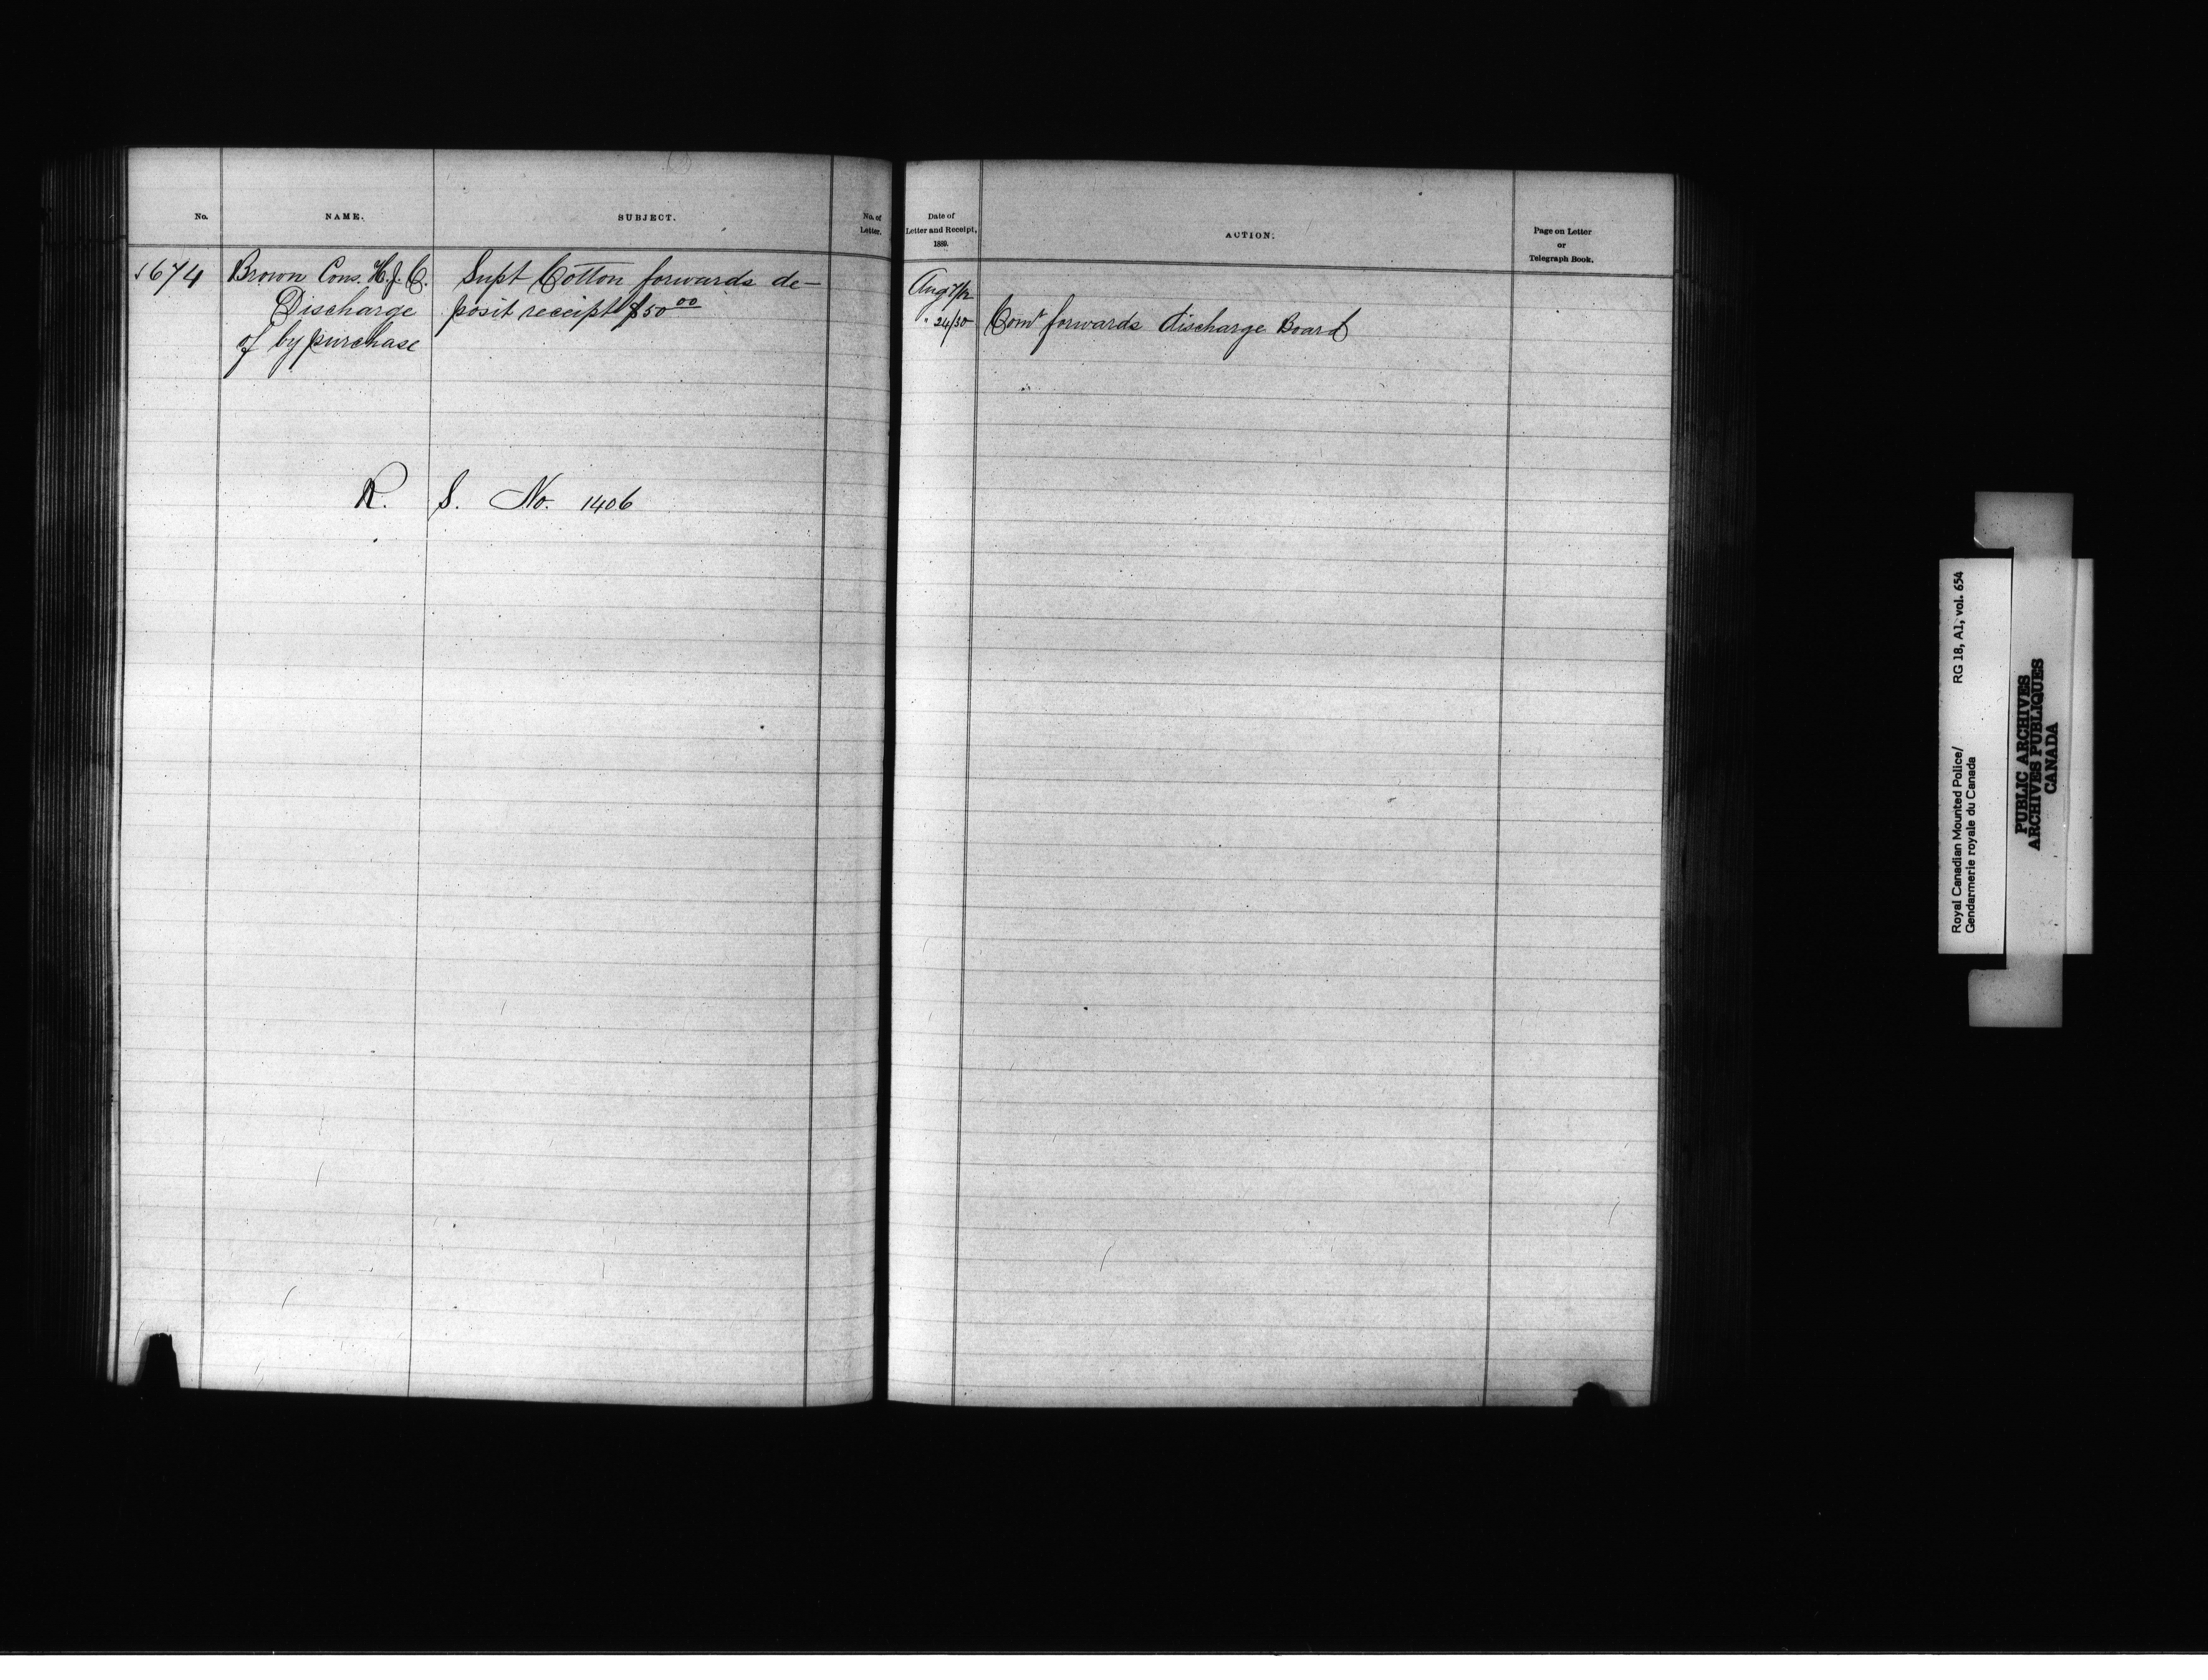 No.
NAME.
SUBJECT.
No. of
Letter.
Date of
Letter and Receipt,
1889.
ACTION.
Page on Letter
or
Telegraph Book.
1674 Brown Cons. H.J.C. Supt Cotton forwards de-
Discharge posit receipt $50 00
of by purchase
Aug 7/12
" 24/30 Comr forwards discharge Board
R. S. No. 1406
Royal Canadian Mounted Police/ RG 18, A1, vol. 654
Gendarmerie royale du Canada
PUBLIC ARCHIVES
ARCHIVES PUBLIQUES
CANADA